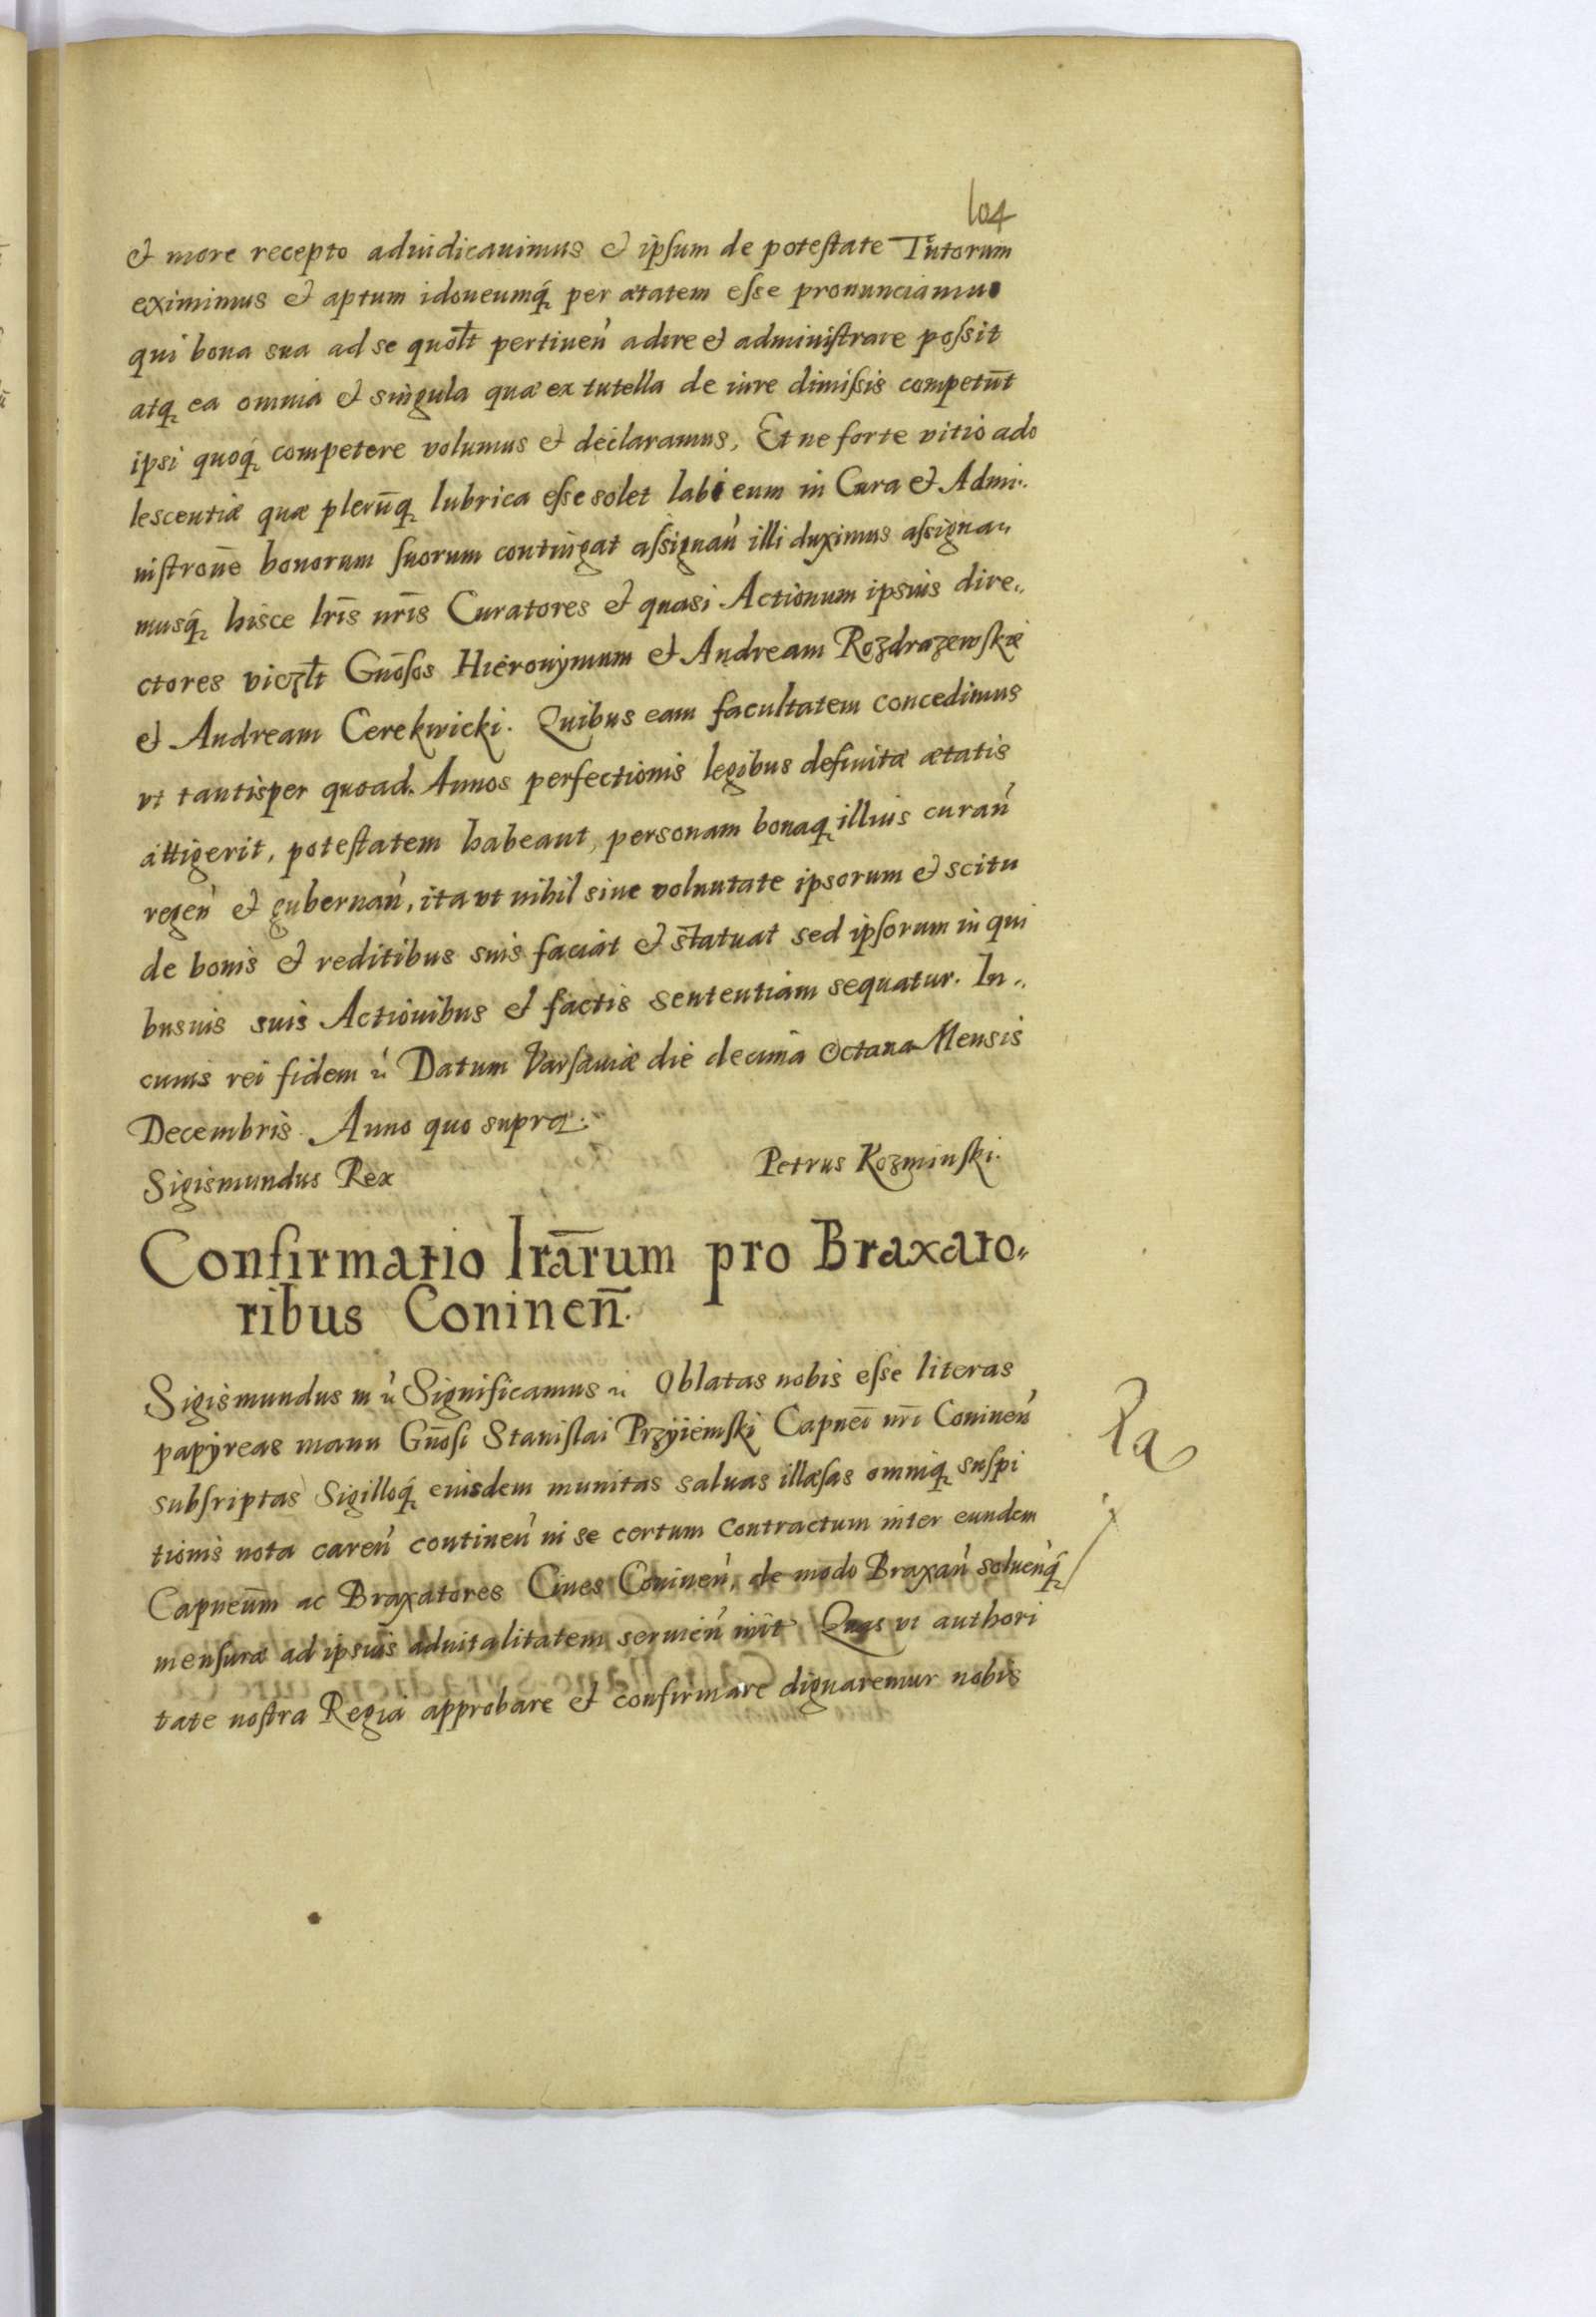 104
et more recepto adiudicavimus et ipsum de potestate Tutorum
eximimus et aptum idoneumq́ꝫ per ætatem esse pronunciamus
qui bona sua ad se quolt̄ pertineñ adire et administrare possit
atqꝫ ea omnia et singula quæ ex tutella de iure dimissis competūt
ipsi quoq́ꝫ competere volumus et declaramus, Et ne forte vitio ado
lescentiæ quæ plerūqꝫ lubrica esse solet labi eum in Cura et Admi„
nistrone̅ bonorum suorum contingat assignañ illi duximus assigna„
musq́ꝫ hisce lr̄is nr̄is Curatores et quasi Actionum ipsius dire„
ctores viczlt̄ Gn̄osos Hieronymum et Andream Rozdrazewskie
et Andream Cerekwicki. Quibus eam facultatem concedimus
vt tantisper quoad Annos perfectionis legibus definitæ ætatis
attigerit, potestatem habeant, personam bonaqꝫ illius curañ
regeñ et gubernañ, ita vt nihil sine voluntate ipsorum et scitu
de bonis et reditibus suis faciat et statuat sed ipsorum in qui
busuis suis Actionibus et factis sententiam sequatur. In„
cuius rei fidem ꝛ Datum Varsaviæ die decima Octaua Mensis
Decembris Anno quo supra.
Sigismundus Rex Petrus Kozminski.
Confirmatio lrārum pro Braxato„
ribus Coninen̄.
Sigismundus iii ꝛ Significamus ꝛ Oblatas nobis esse literas
papyreas manu Gn̄osi Stanislai Przyiemski Capnei̅ nr̄i Conineñ
subsriptas Sigilloq́ꝫ eiusdem munitas saluas illæsas omniqꝫ suspi
tionis nota careñ contineñ in se certum Contractum inter eundem
Capneūm ac Braxatores Ciues Conineñ, de modo Braxañ solueñq́ꝫ
mensuræ ad ipsius aduitalitatem seruieñ init̄ Quas vt authori
tate nostra Regia approbare et confirmare dignaremur nobis